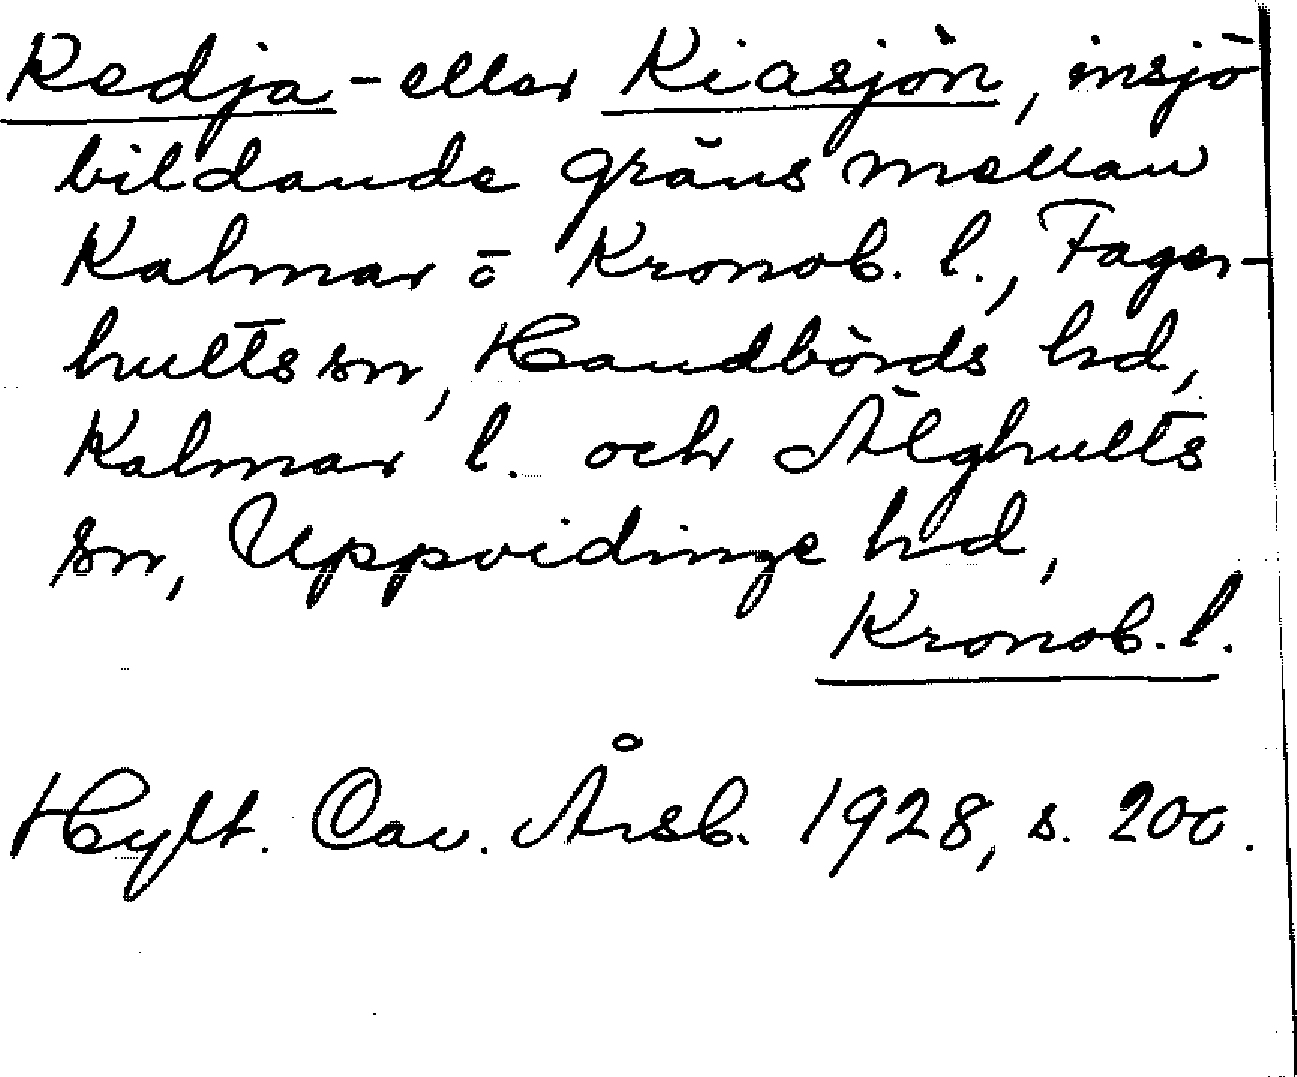 Kedja- eller Kiasjön, insjö
bildande gräns mellan
Kalmar o Kronob. l., Fager-
hults sn, Handbörds hd,
Kalmar l. och Älghults
sn, Uppvidinge hd,
Kronob. l.
Hylt. Cav. Årsb. 1928, s. 200.